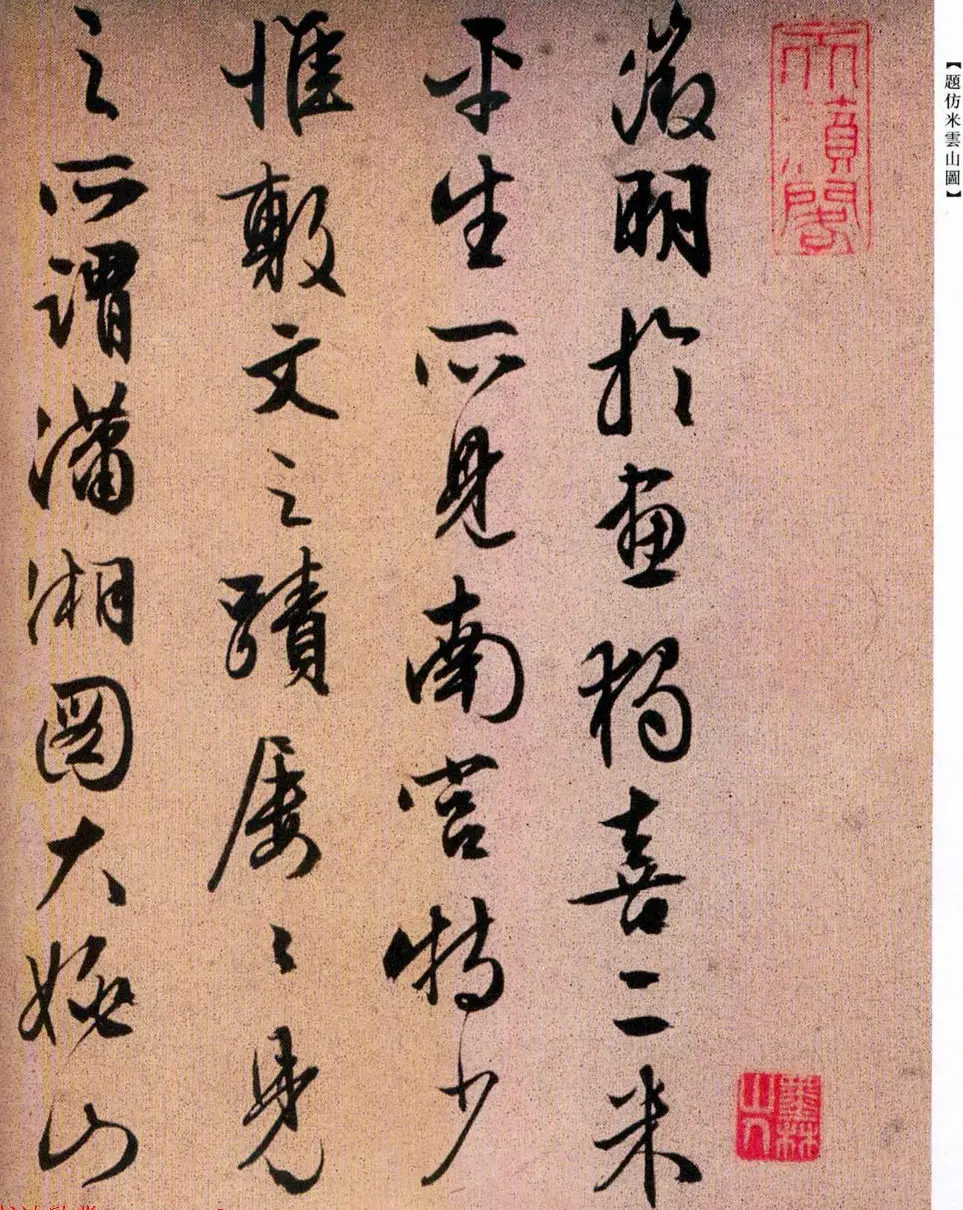 【題仿米雲山圖】
天籟閣
墨林山人
徵明於畫獨喜二米
平生所見南宮特少
惟敷文之蹟屢〻見
之所謂瀟湘圖大姚山